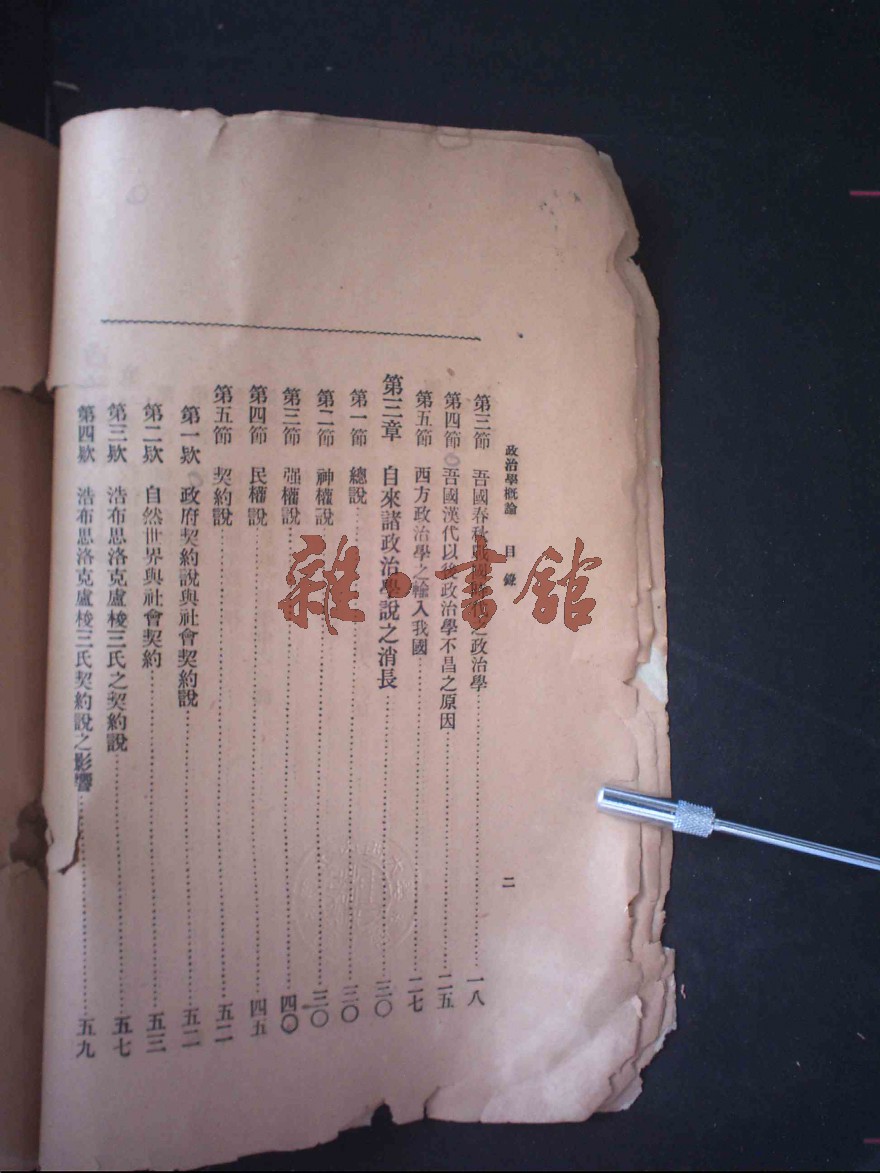 政治學概論 目錄 二
第三節 吾國春秋戰國時代之政治學 一八
第四節 吾國漢代以後政治學不昌之原因 二五
第五節 西方政治學之輸入我國 二七
第三章 自來諸政治學說之消長 三〇
第一節 總說 三〇
第二節 神權說 三〇
第三節 强權說 四〇
第四節 民權說 四五
第五節 契約說 五二
第一欵 政府契約說與社會契約說 五二
第二欵 自然世界與社會契約 五三
第三欵 浩布思洛克盧梭三氏之契約說 五七
第四欵 浩布思洛克盧梭三氏契約說之影響 五九
雜·書館